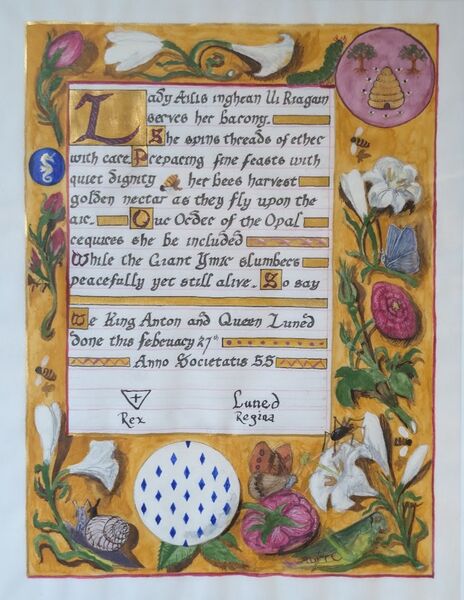 Lady Ailis inghean Ui Riagain
serves her bacony.
She spins threads of ether
with care. Preparing fine feasts with
quiet dignity her bees harvest
golden nectar as they fly upon the
air. Our Order of the Opal
requires she be included
While the Giant Ymir slumbers
peacefully yet still alive. So say
We King Anton and Queen Luned
done this february 27th
Anno Societatis 55
Rex
Luned
Regina